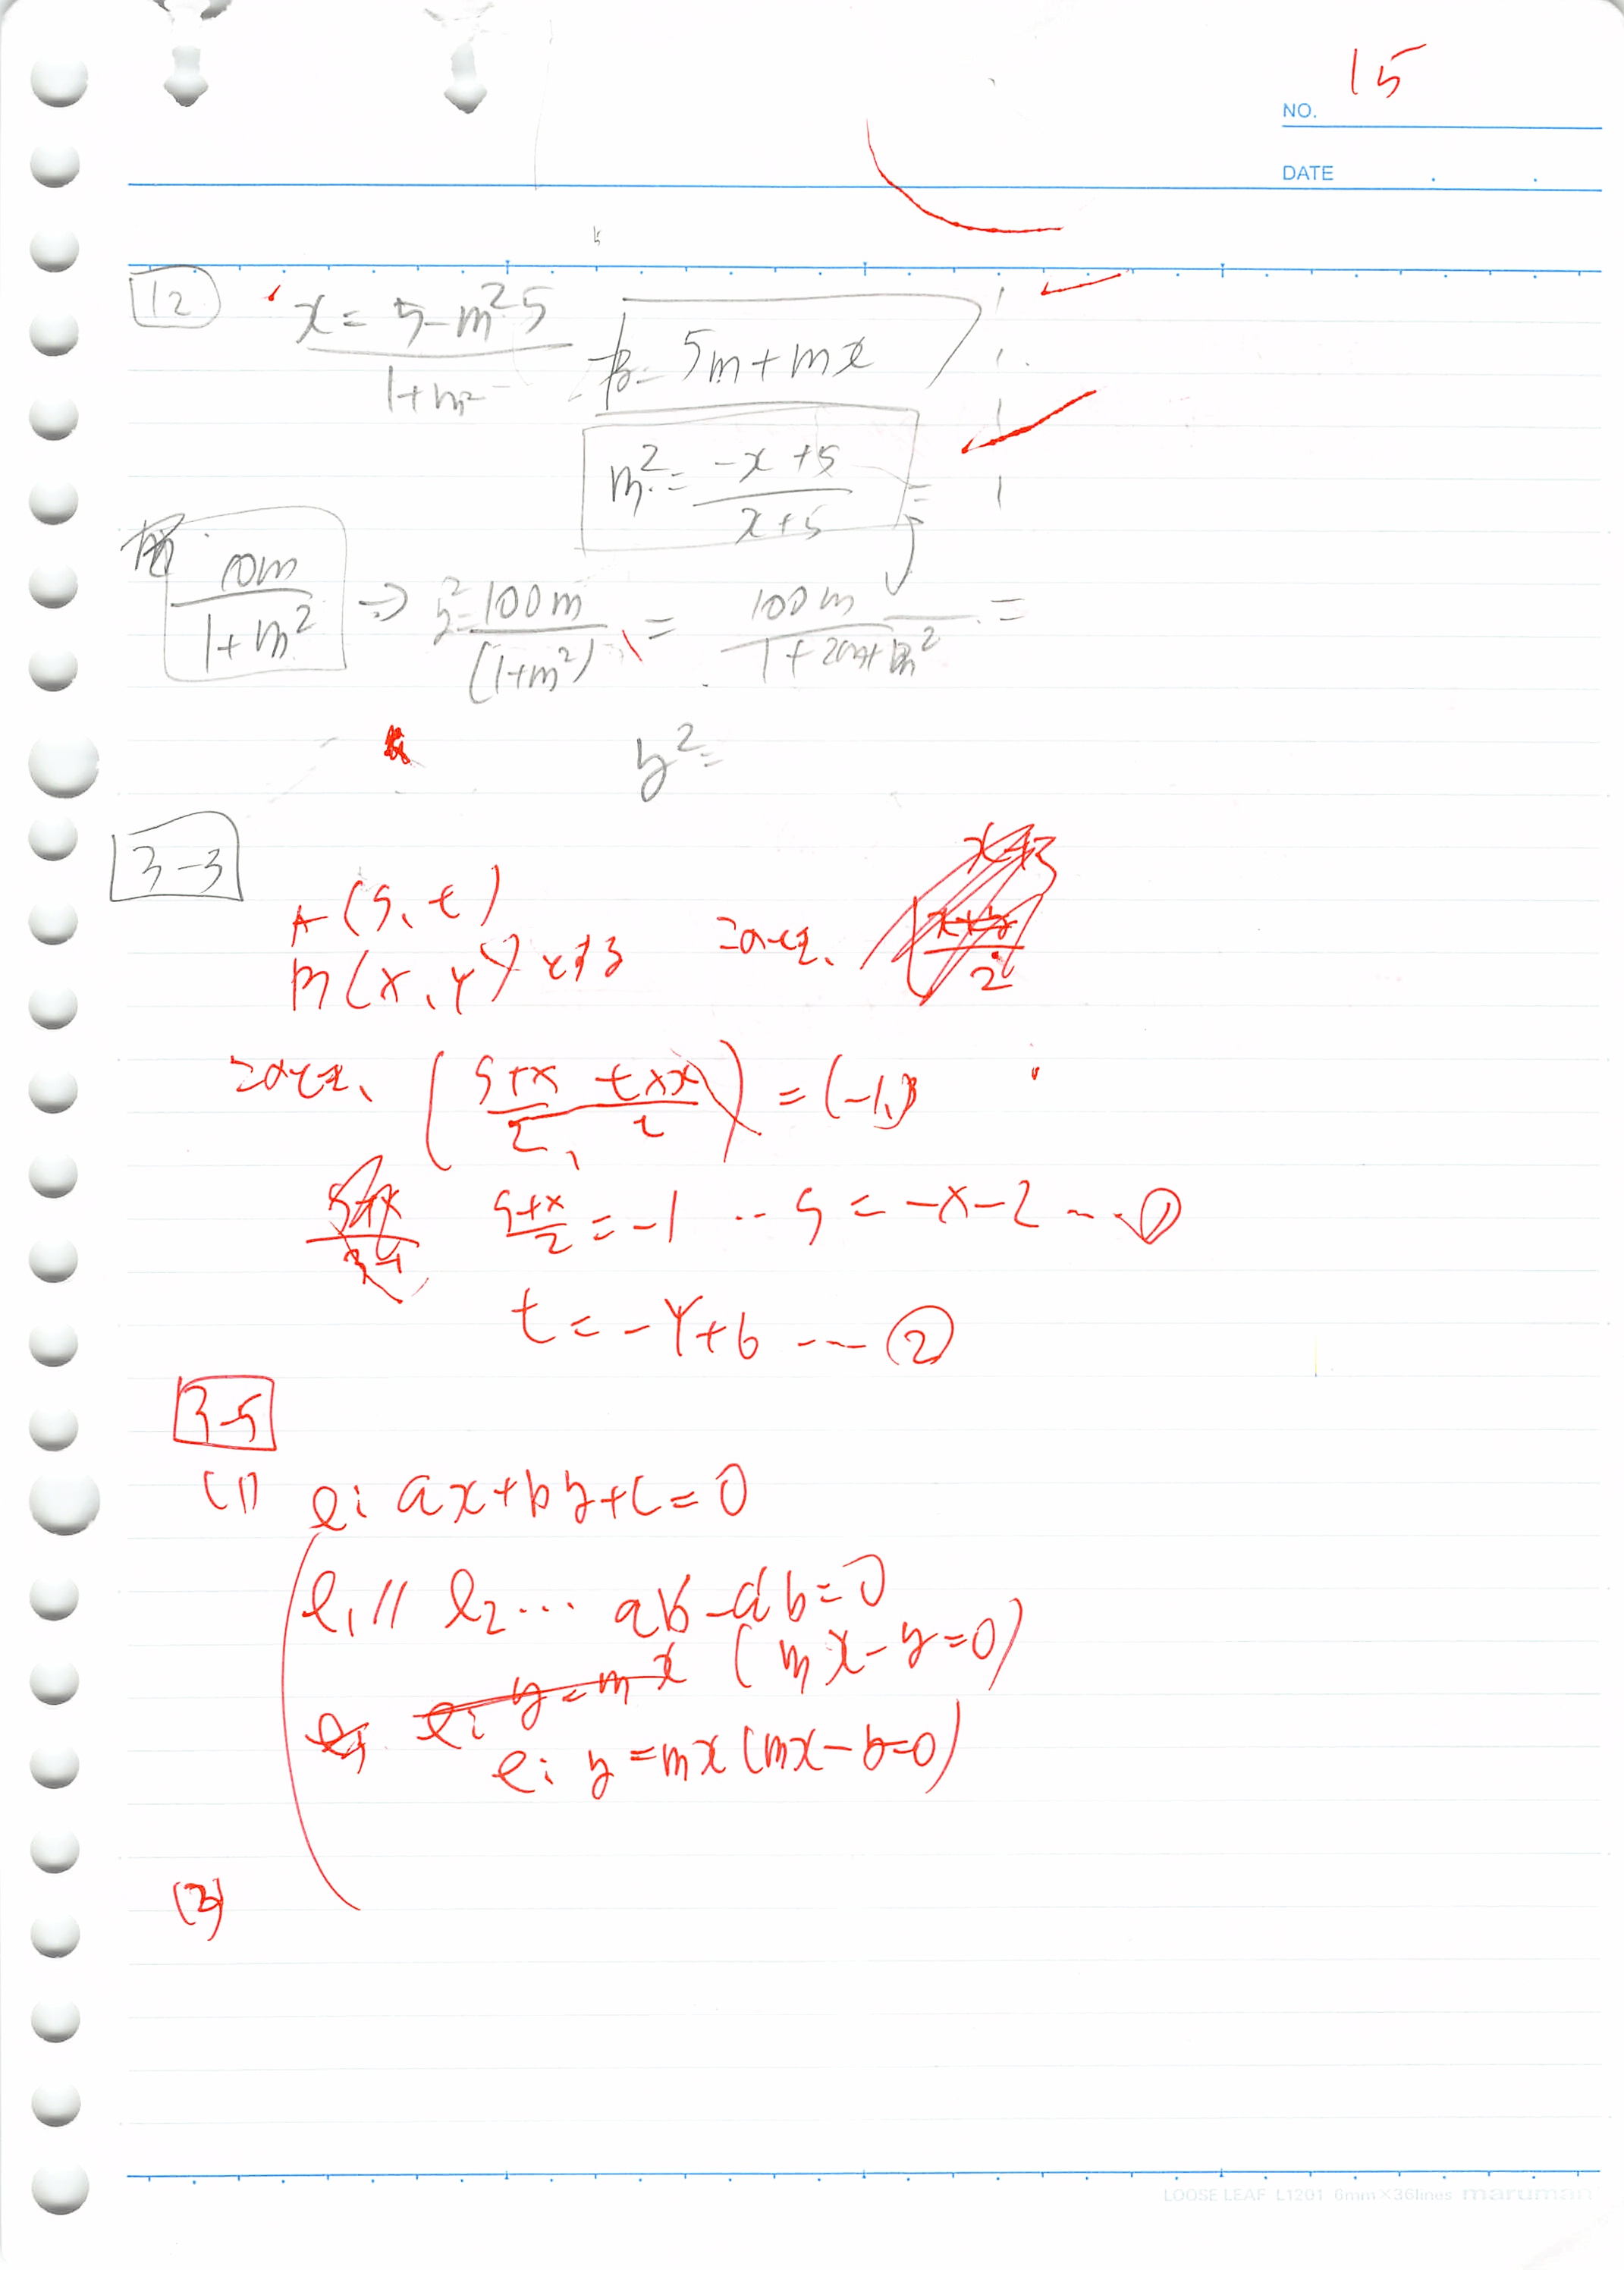 15
NO.
DATE
12
x = 5-m²5 / 1+m²
y = 5m+mx
m² = -x+5 / x+5
10m / 1+m² ⇒ y² = 100m / (1+m²) = 100m / 1+2m+m² =
y² =
3-3
A(s, t)
M(x, y) とする このとき、
このとき、 ( s+x / 2, t+y / 2 ) = (-1, 3)
s+x / 2 = -1 ... s = -x-2 ... ①
t = -y+6 ... ②
3-5
(1) l: ax+by+c=0
l₁ // l₂ ... ab'-a'b=0
l: y=mx (mx-y=0)
l: y=mx (mx-y=0)
(2)
LOOSE LEAF L1201 6mm×36lines maruman